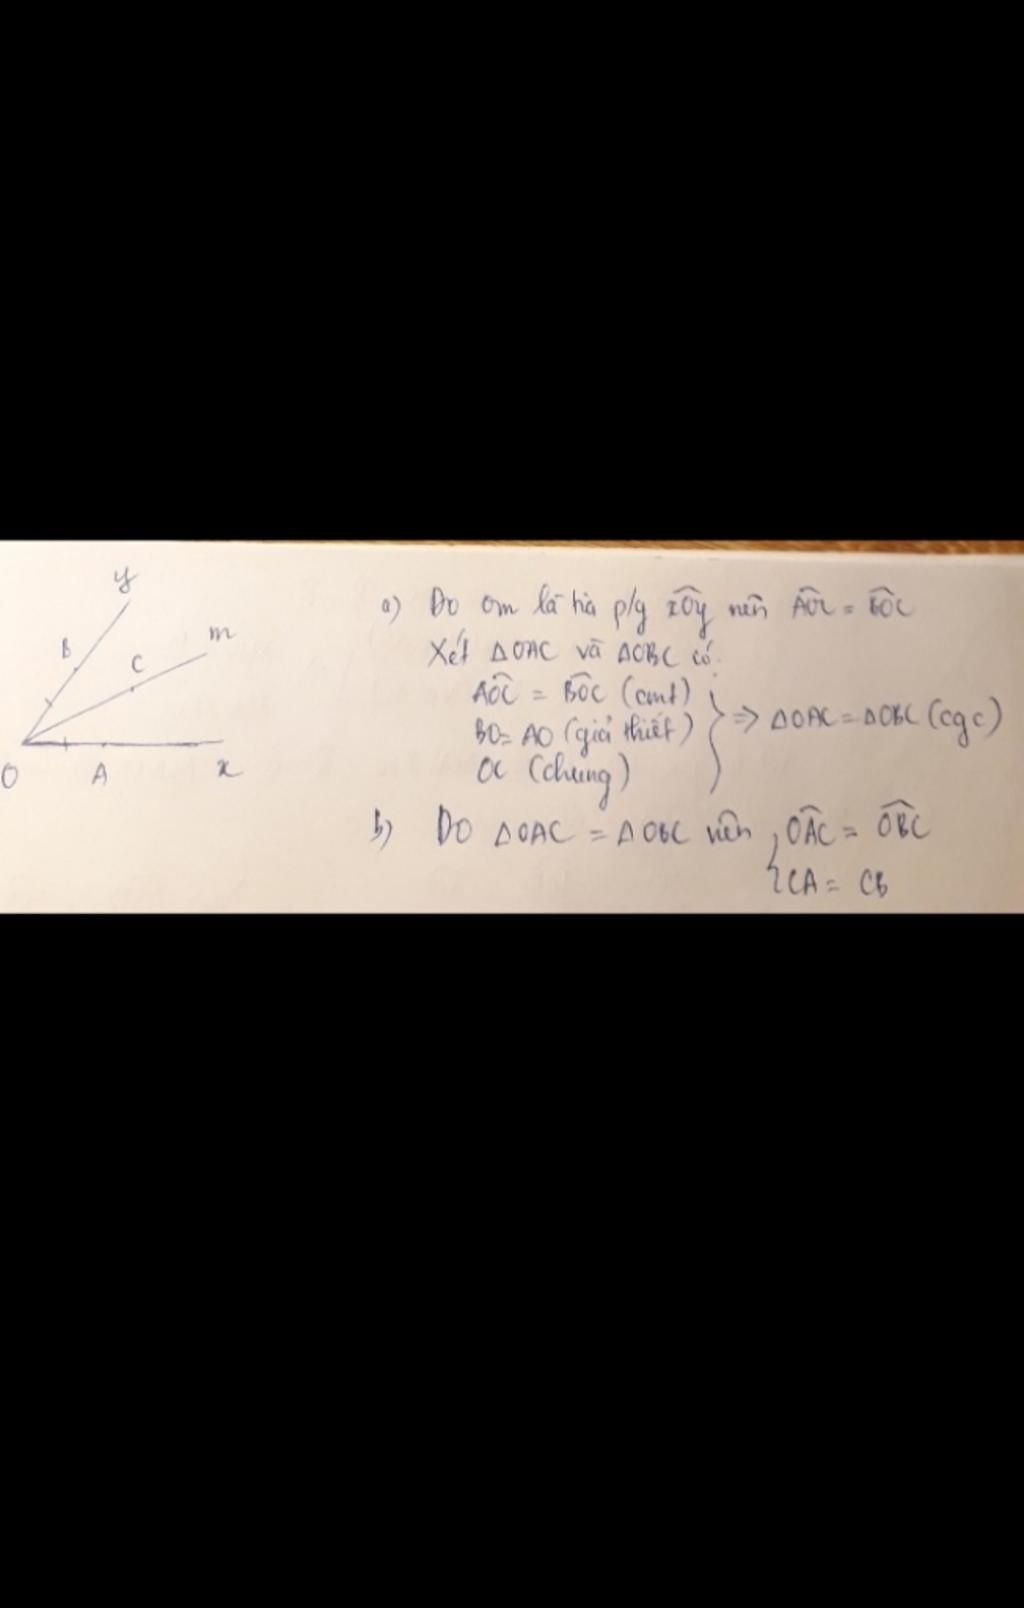 y
m
B
C
O
A
x
a) Do Om là tia p/g xÔy nên AÔC = BÔC
Xét ΔOAC và ΔOBC có:
AÔC = BÔC (cmt)
BO = AO (giả thiết)
OC (chung)
} => ΔOAC = ΔOBC (cgc)
b) Do ΔOAC = ΔOBC nên { OÂC = OB̂C
CA = CB